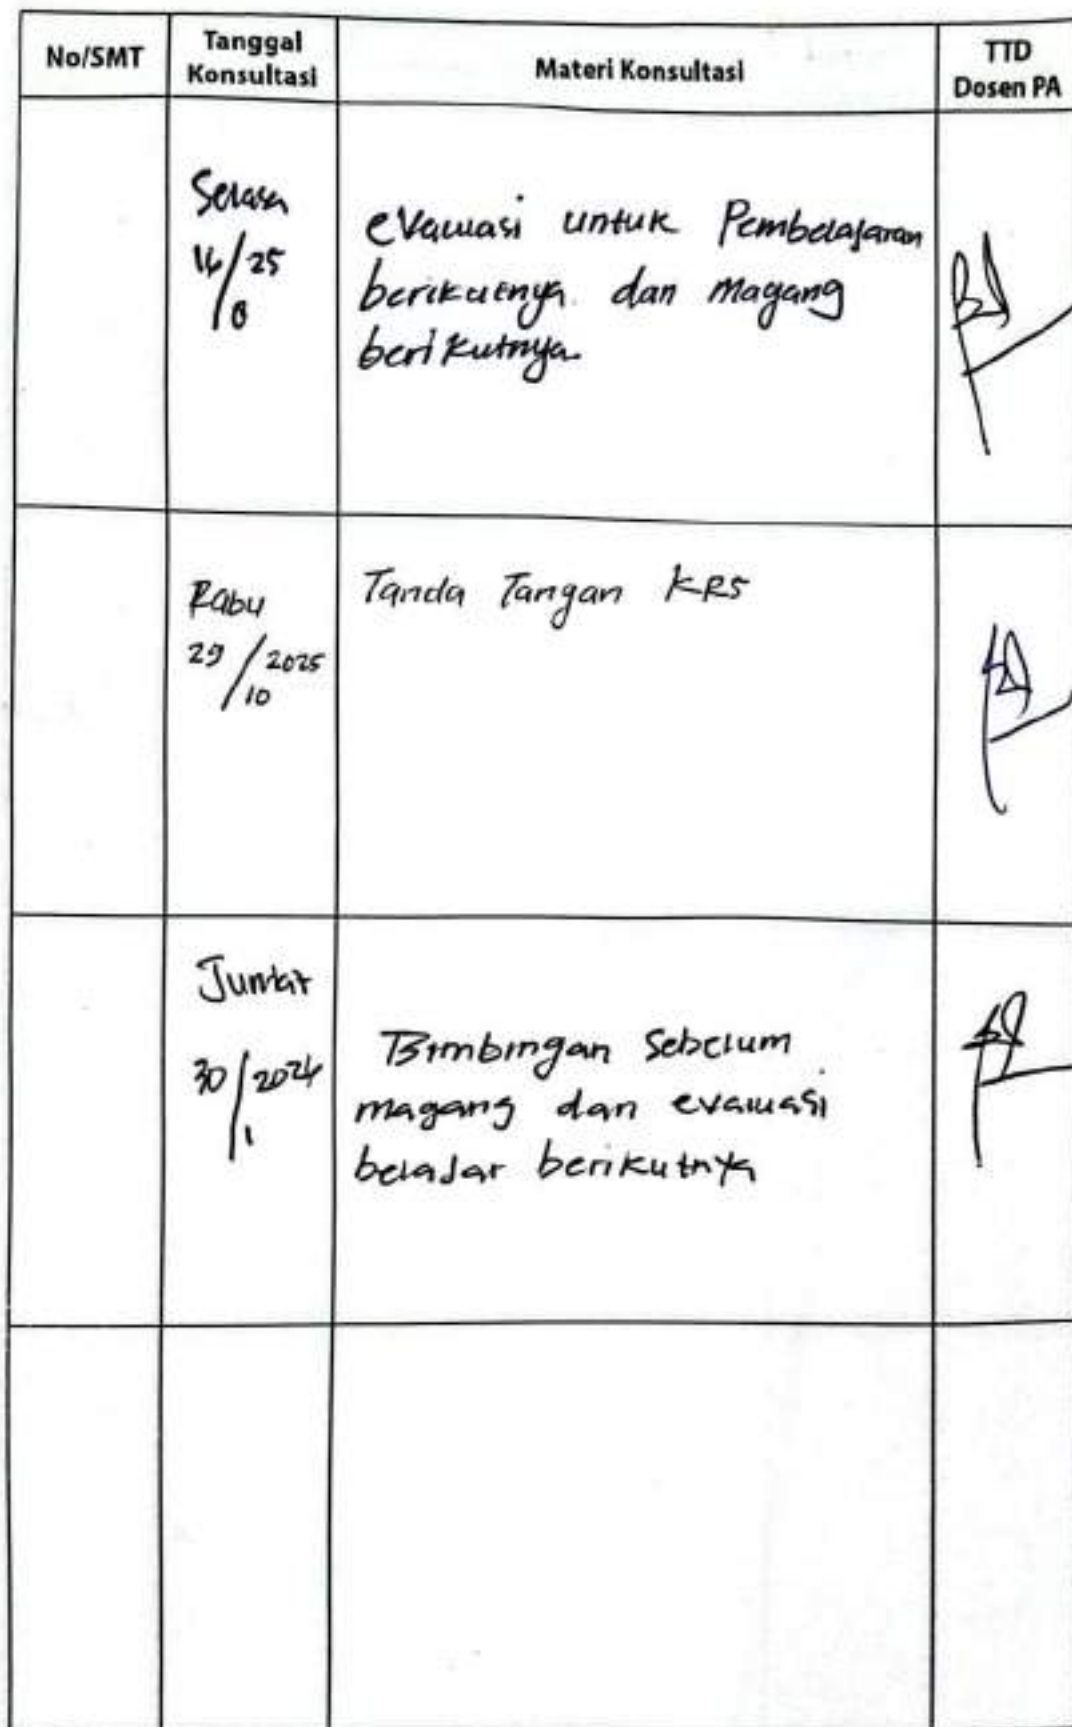 No/SMT
Tanggal
Konsultasi
Materi Konsultasi
TTD
Dosen PA
Selasa
/25
8
evaluasi untuk Pembelajaran
berikutnya dan magang
berikutnya
Rabu
29/2025
10
Tanda Tangan KRS
Jum'at
30/2026
1
Bimbingan Sebelum
magang dan evaluasi
belajar berikutnya